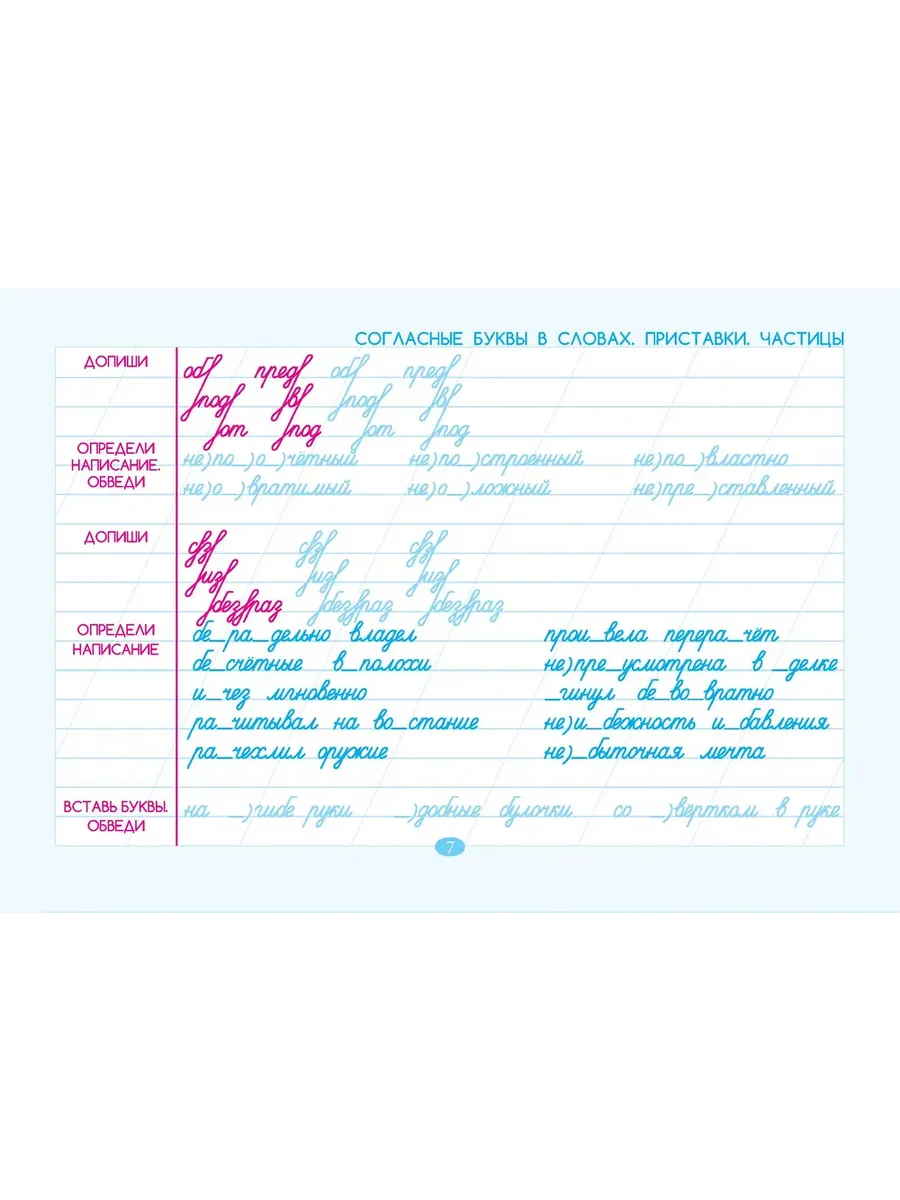 СОГЛАСНЫЕ БУКВЫ В СЛОВАХ. ПРИСТАВКИ. ЧАСТИЦЫ
ДОПИШИ
об пред об пред
под в под в
от под от под
ОПРЕДЕЛИ НАПИСАНИЕ. ОБВЕДИ
не)по_)о_)чётный не)по_)строенный не)по_)властно
не)о_)вратимый не)о_)ложный не)пре_)ставленный
ДОПИШИ
вз вз вз
из из из
без раз без раз без раз
ОПРЕДЕЛИ НАПИСАНИЕ
бе_ра_дельно владел прои_вела перера_чёт
бе_счётные в_полохи не)пре_усмотрена в _делке
и_чез мгновенно _гинул бе_во_вратно
ра_читывал на во_стание не)и_бежность и_бавления
ра_чехлил оружие не)_быточная мечта
ВСТАВЬ БУКВЫ. ОБВЕДИ
на _)гибе руки _)добные булочки со _)вёртком в руке
7